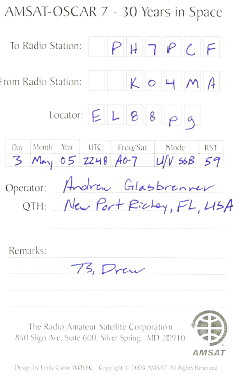 AMSAT-OSCAR 7 - 30 Years in Space
To Radio Station: PH7PCF
From Radio Station: KO4MA
Locator: EL88pg
Day Month Year UTC Freq/Sat Mode RST
3 May 05 2248 AO-7 U/V SSB 59
Operator: Andrew Glasbrenner
QTH: New Port Richey, FL, USA
Remarks:
73, Drew
The Radio Amateur Satellite Corporation
850 Sligo Ave, Suite 600, Silver Spring, MD 20910
AMSAT
Design by Emily Clarke Copyright © 2003 AMSAT. All Rights Reserved.